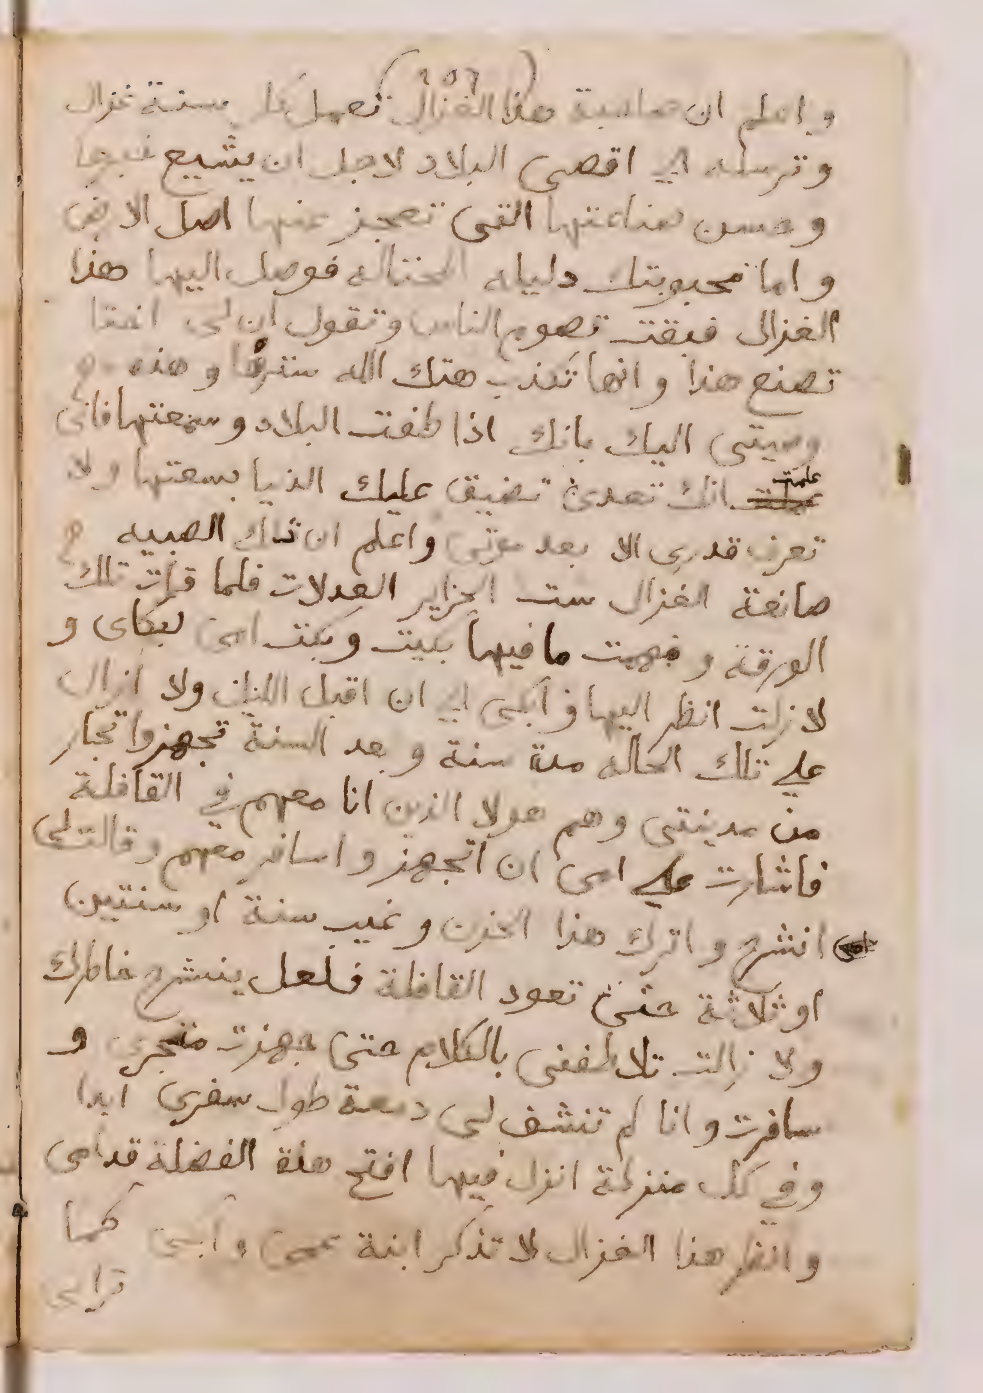 (２５２)
واعلم ان صاحبة هذا الغزال تعمل كل سنة غزال
وترسله الي اقصى البلاد لاجل ان يشيع خبرها
وحسن صناعتها التى تعجز عنها اهل الارض
واما محبوبتك دليله المحتاله فوصل اليها هذا
الغزال فبقت تصوم الناس وتقول ان لى اختا
تصنع هذا وانها تكذب هتك الله سترها وهذه
وصيتى اليك بانك اذا طفت البلاد وسمعتها فانى
علمت انك تعدى تضيق عليك الدنيا بسعتها ولا
تعرف قدرى الا بعد موتى واعلم ان تلك الصبيه
صانعة الغزال ست الجزاير العدلات فلما قرات تلك
الورقة وفهمت ما فيها بكيت وبكت امى لبكاى و
لا زلت انظر اليها وأبكى الي ان اقبل الليل ولا ازال
علي تلك الحاله مدة سنة وبعد السنة تجهزوا تجار
من مدينتى وهم هولا الذين انا معهم في القافلة
فاشارت علي امى ان اتجهز واسافر معهم وقالت لى
انشرح واترك هذا الحزن وغيب سنة او سنتين
او ثلاثة حتى تعود القافلة فلعل ينشرح خاطرك
ولا زالت تلاطفنى بالكلام حتى جهزت متجرى و
سافرت وانا لم تنشف لى دمعة طول سفرى ابدا
وفي كل منزلة انزل فيها افتح هذة الفضلة قدامى
وانظر هذا الغزال لا تذكر ابنة عمى وأبكى كما
ترانى